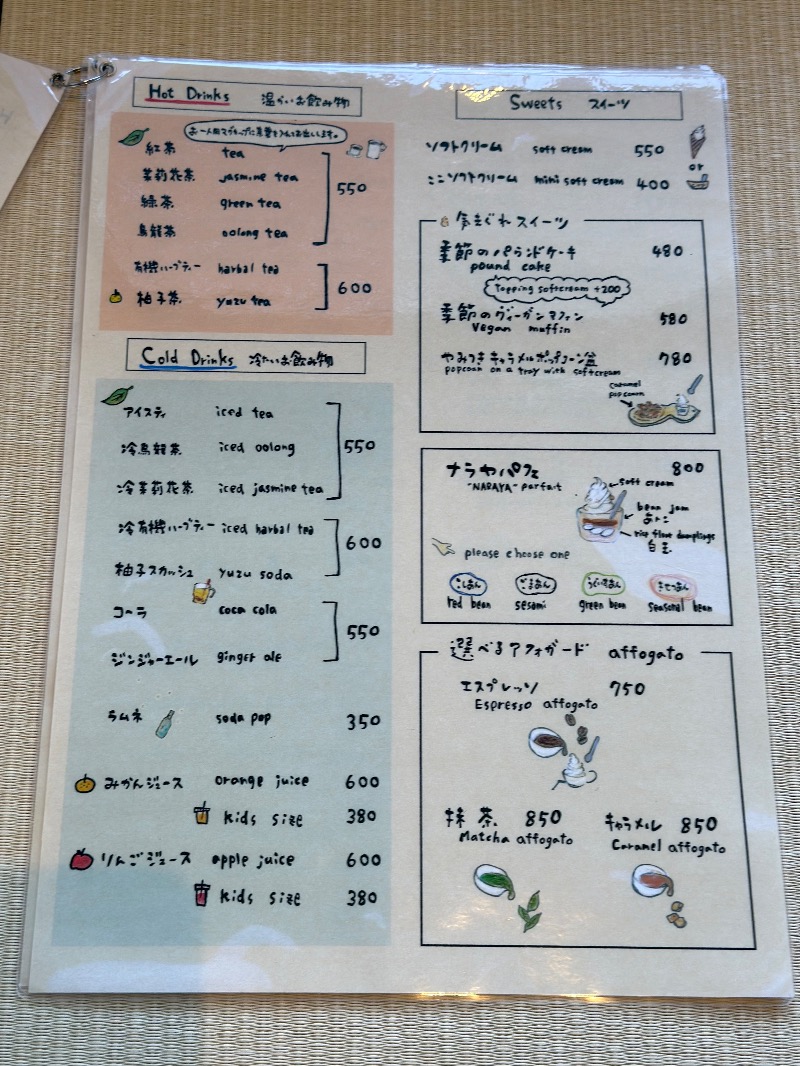 Hot Drinks 温かいお飲み物
お一人用マグカップに茶葉を入れてお出しします。
紅茶 tea
茉莉花茶 jasmine tea
550
緑茶 green tea
烏龍茶 oolong tea
有機ハーブティー harbal tea
600
柚子茶 yuzu tea
Cold Drinks 冷たいお飲み物
アイスティ iced tea
冷烏龍茶 iced oolong
550
冷茉莉花茶 iced jasmine tea
冷有機ハーブティー iced harbal tea
600
柚子スカッシュ yuzu soda
コーラ coca cola
550
ジンジャーエール ginger ale
ラムネ soda pop 350
みかんジュース orange juice 600
kids size 380
りんごジュース apple juice 600
kids size 380
Sweets スイーツ
ソフトクリーム soft cream 550
or
ミニソフトクリーム mini soft cream 400
気まぐれスイーツ
季節のパウンドケーキ 480
pound cake
Topping softcream +200
季節のヴィーガンマフィン 580
Vegan muffin
やみつきキャラメルポップコーン盆 780
popcorn on a tray with softcream
caramel
popcorn
ナラヤパフェ 800
"NARAYA" parfait
soft cream
bean jam
あんこ
rice flour dumplings
白玉
please choose one
こしあん ごまあん うぐいすあん きせつあん
red bean sesami green bean seasonal bean
選べるアフォガード affogato
エスプレッソ 750
Espresso affogato
抹茶 850
Matcha affogato
キャラメル 850
Caramel affogato